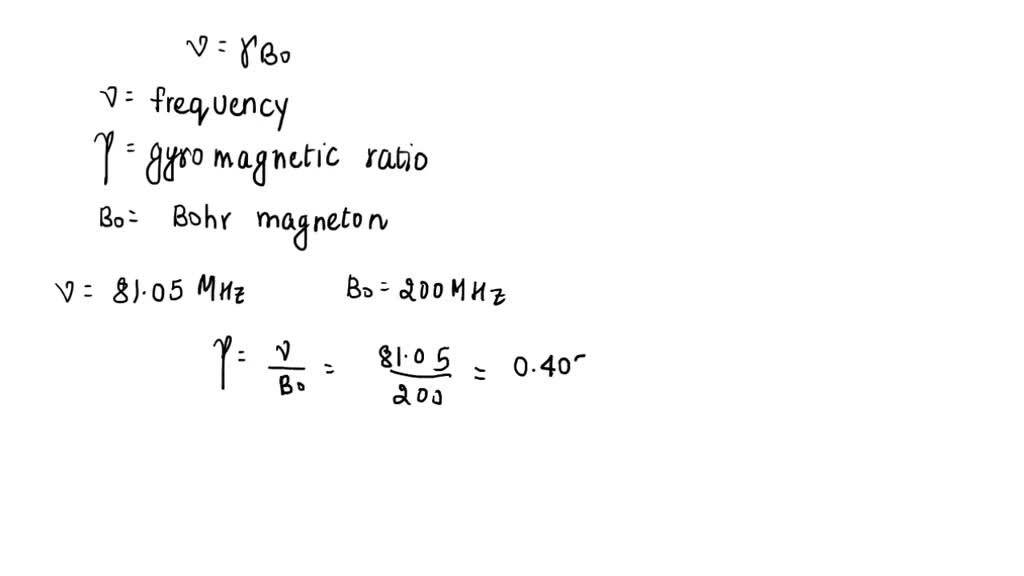 ν = γB₀
ν = frequency
γ = gyromagnetic ratio
B₀ = Bohr magneton
ν = 81.05 MHz B₀ = 200 MHz
γ = ν/B₀ = 81.05/200 = 0.40